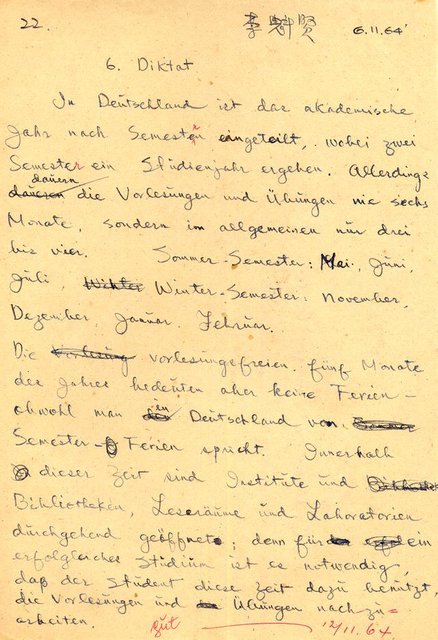 22. 李魁賢 6.11.64'
6. Diktat
In Deutschland ist das akademische
Jahr nach Semestern eingeteilt, wobei zwei
Semester ein Studienjahr ergeben. Allerdings
dauern
dauesen die Vorlesungen und Übungen nie sechs
Monate, sondern im allgemeinen nur drei
bis vier. Sommer-Semester: Mai, Juni,
Juli, Winter-Semester: November,
Dezember Januar. Februar.
Die Vorlesung vorlesungsfreien fünf Monate
des Jahres bedeuten aber keine Ferien -
obwohl man in Deutschland von
Semester-Ferien spricht. Innerhalb
dieser Zeit sind Institute und
Bibliotheken, Leseräume und Laboratorien
durchgehend geöffnet; denn für ein
erfolgleiches Studium ist es notwendig,
daß der Student diese Zeit dazu benützt,
die Vorlesungen und Übungen nachzu=
arbeiten. gut 12/11.64